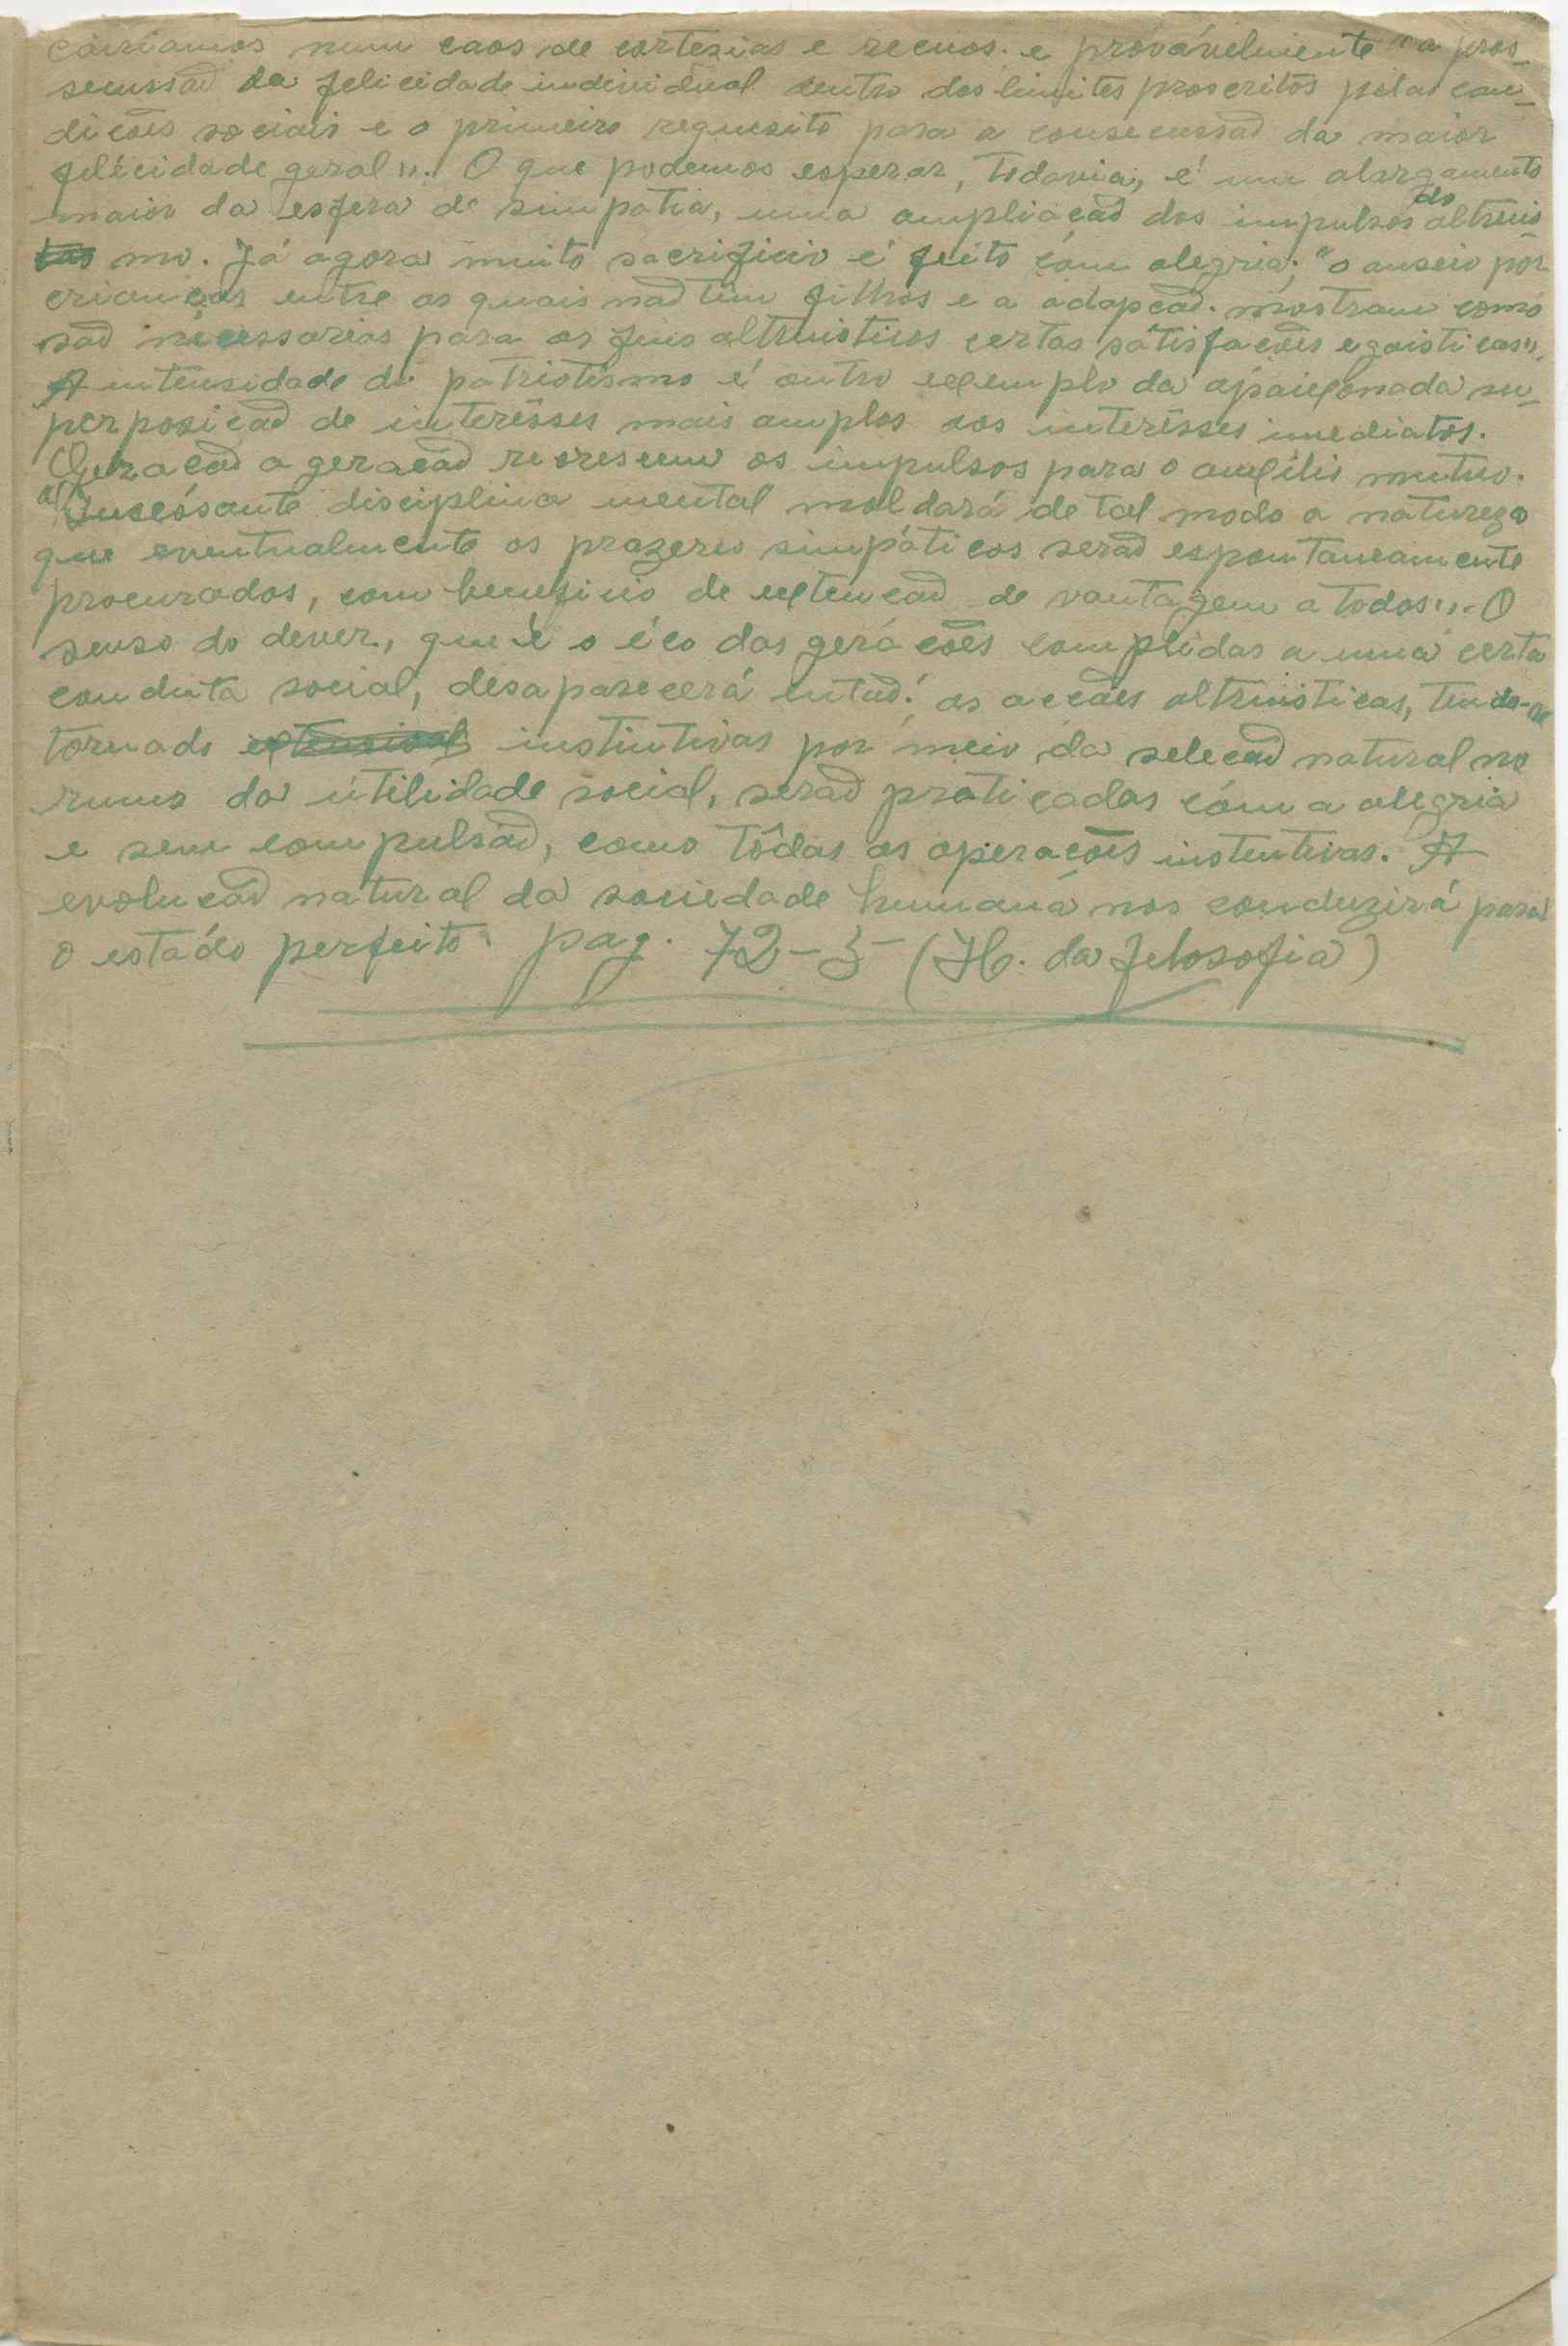 cairíamos num caos de cortezias e recuos. e provávelmente "a pros-
secussaõ da felicidade individual dentro dos limites proscritos pelas con-
dicoẽs sociais e o primeiro requesito para a consecussaõ da maior
felicidade geral". O que podemos esperar, todavia, é um alargamento
maior da esfera de simpatia, uma ampliacaõ dos impulsos do altruis-
mo. Já agora muito sacrificio é feito com alegria; "o anseio por
criancas entre as quais naõ tim filhos e a adapcaõ. mostram como
saõ nécessarias para os fins altruisticos certas satisfacoẽs egoisticas".
A intensidade do patriotismo é outro exemplo da apaixonada su-
perposicaõ de interêsses mais amplos aos interêsses imediatos.
Geracaõ a geracaõ recrescem os impulsos para o auxilio mutuo.
"Incessante disciplina mental moldará de tal modo a natureza
que eventualmente os prazeres simpáticos seraõ espontaneamente
procurados, com beneficio de extencaõ de vantagem a todos". O
senso do dever, que é o éco das geracoẽs complidas a uma certa
conduta social, desaparecerá entaõ; as accoẽs altruisticas, tendo-se
tornado instintivas por meio da selecaõ natural no
rumo da utilidade social, seraõ praticadas com a alegria
e sem compulsaõ, como tôdas as operacoẽs instentivas. A
evolucaõ natural da sociedade humana nos conduzirá para
o estado perfeito. pag. 72-5 (H. da felosofia)